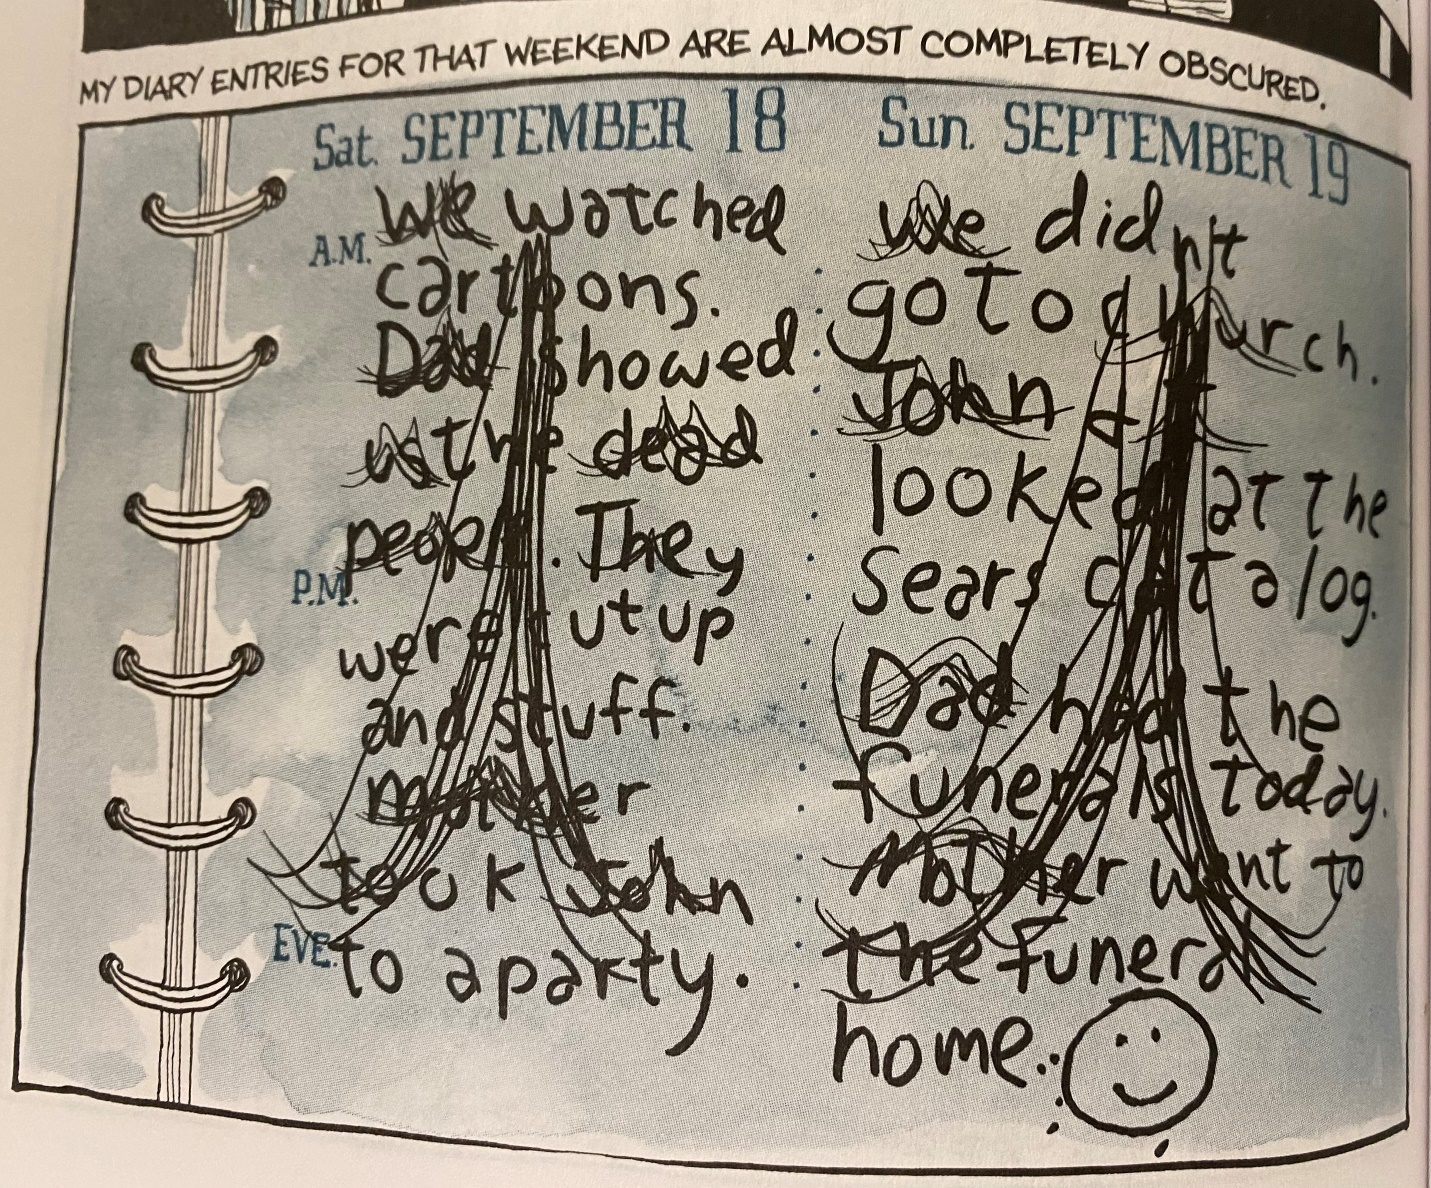 MY DIARY ENTRIES FOR THAT WEEKEND ARE ALMOST COMPLETELY OBSCURED.
Sat. SEPTEMBER 18
A.M.
We watched
cartoons.
Dad showed
us the dead
people. They
P.M.
were cut up
and stuff.
mother
took John
EVE.
to a party.
Sun. SEPTEMBER 19
We didn't
go to church.
John +
looked at the
Sears catalog.
Dad had the
funerals today.
Mother went to
the funeral
home.